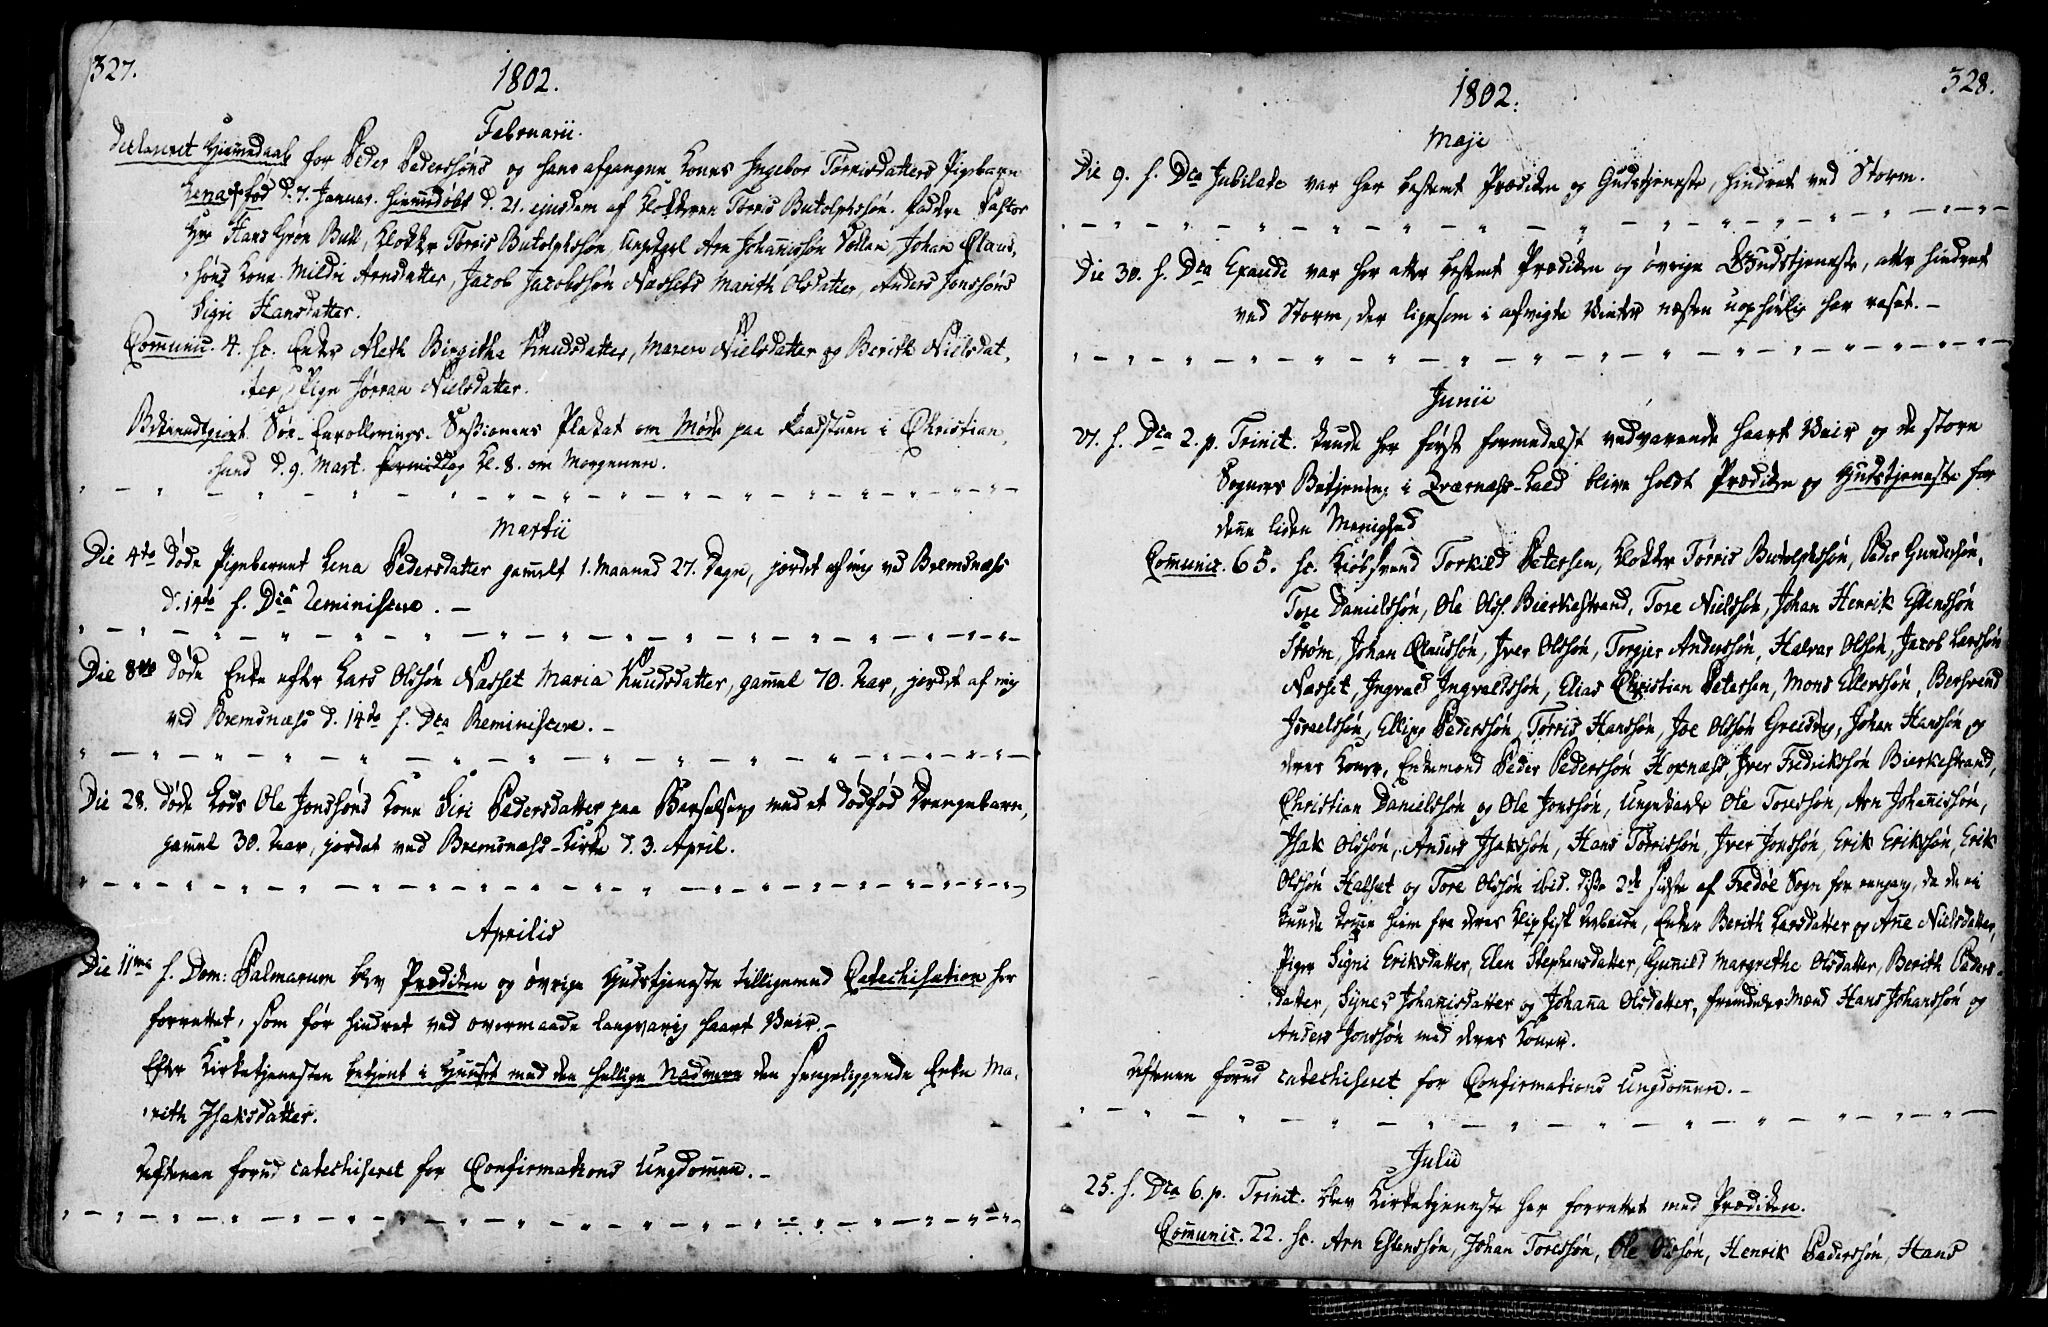 327.
1802.
Februarii.
Declareret Hiemedaab for Peder Pedersøns og hans afgangne Kones Ingebor Tørrisdatters Pigebarn
Lena fød d. 7. Januar. hiemdøbt d. 21. ejusdem af Klokkeren Tørris Butolphsøn. Faddre Pastor
Hr Hans Grøn Bull, Klokker Tørris Butolphsøn, Ungkarl Arn Johannissøn Vollen, Johan Claus-
søns Kone Mildri Arnsdatter, Jacob Jacobssøn Nassets Marith Olsdatter, Anders Jonssøns
Sigri Hansdatter.
Comunic. 4. sc. Enker Aleth Birgitha Knudsdatter, Maren Nielsdatter og Berith Nielsdat-
ter, Pige Jørran Nielsdatter.
Bekiendtgiort Søe-Enrollerings-Sessionens Plakat om Møde paa Raadstuen i Christian-
sund d. 9. Mart. formiddag Kl. 8. om Morgenen.
Martii
Die 4to døde Pigebarnet Lena Pedersdatter gamelt 1. Maaned 27. Dage, jordet af mig ved Bremsnæss
d. 14de f. Dca Reminiscere.
Die 8vo døde Enke efter Lars Olssøn Nasset Maria Knudsdatter, gamel 70. Aar, jordet af mig
ved Bremsnæss d. 14de f. Dca Reminiscere.
Die 28. døde Lods Ole Jonssøns Kone Siri Pedersdatter paa Barselseng med et dødfød Drengebarn,
gamel 30. Aar, jordet ved Bremsnæss-Kirke d. 3. April.
Aprilis
Die 11ma f. Dom: Palmarum blev Prædiken og øvrige Gudstjeneste tilligemed Catechisation her
forrettet, som før hindret ved overmaade langvarig haart Veir.
Efter Kirketjenesten betjent i Huuset med den hellige Nadvere den sengeliggende Enke Ma-
rith Isaksdatter.
Aftenen forud catechiseret for Confirmations Ungdomen.
328.
1802.
Maji
Die 9. f. Dca Jubilate var her bestemt Prædiken og Gudstjeneste, hindret ved Storm.
Die 30. f. Dca Exaudi var her atter bestemt Prædiken og øvrige Gudstjeneste, atter hindret
ved Storm, der ligesom i afvigte Vinter næsten uophørlig har raset.
Junii
27. f. Dca 2. p. Trinit. kunde her først formedelst vedvarende haart Veir og de store
Sognes Betjening i Qværnæss-Kald blive holdt Prædiken og Gudstjeneste for
denne liden Menighed
Comunic. 65. sc. Kiøbsvend Torkild Petersen, Klokker Tørris Butolphssøn, Peder Gundersøn,
Tore Danielssøn, Ole Olss. Bierkestrand, Tore Nielssøn, Johan Henrik Estenssøn
Strøm, Johan Claussøn, Iver Olssøn, Torgjer Anderssøn, Halvar Olssøn, Jacob Larssøn
Nasset, Ingvald Ingvaldssøn, Elias Christian Petersen, Mons Ellerssøn, Bersvend
Israelssøn, Elling Pederssøn, Tørris Hanssøn, Joe Olssøn Greisvig, Johan Hanssøn og
deres Koner, Enkemænd Peder Pederssøn Hoxnæss Iver Fredrikssøn Bierkestrand,
Christian Danielssøn og Ole Jonssøn, Ungekarle Ole Toressøn, Arn Johannissøn,
Isak Olssøn, Anders Isakssøn, Hans Tørrissøn, Iver Jonssøn, Erik Erikssøn, Erik
Olssøn Halset og Tore Olssøn ibid. disse 2de sidste af Fredøe Sogn for engang, da de ei
kunde komme hiem fra deres Klipfisk Arbeide, Enker Berith Larsdatter og Anne Nielsdatter,
Piger Signi Eriksdatter, Elen Stephensdatter, Gunild Margrethe Olsdatter, Berith Peders-
datter, Synes Johannisdatter og Johanna Olsdatter, fremmede Mænd Hans Johanssøn og
Anders Jonssøn med deres Koner.
Aftenen forud catechiseret for Confirmations Ungdommen.
Julii
25. f. Dca 6. p. Trinit. blev Kirketjeneste her forrettet med Prædiken.
Comunic. 22. sc. Arn Estenssøn, Johan Toressøn, Ole Olssøn, Henrik Pederssøn, Hans